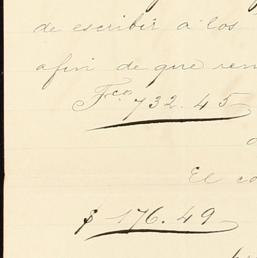 de escribir á los
afin de que
Fco. 732.45
El
$ 176.49